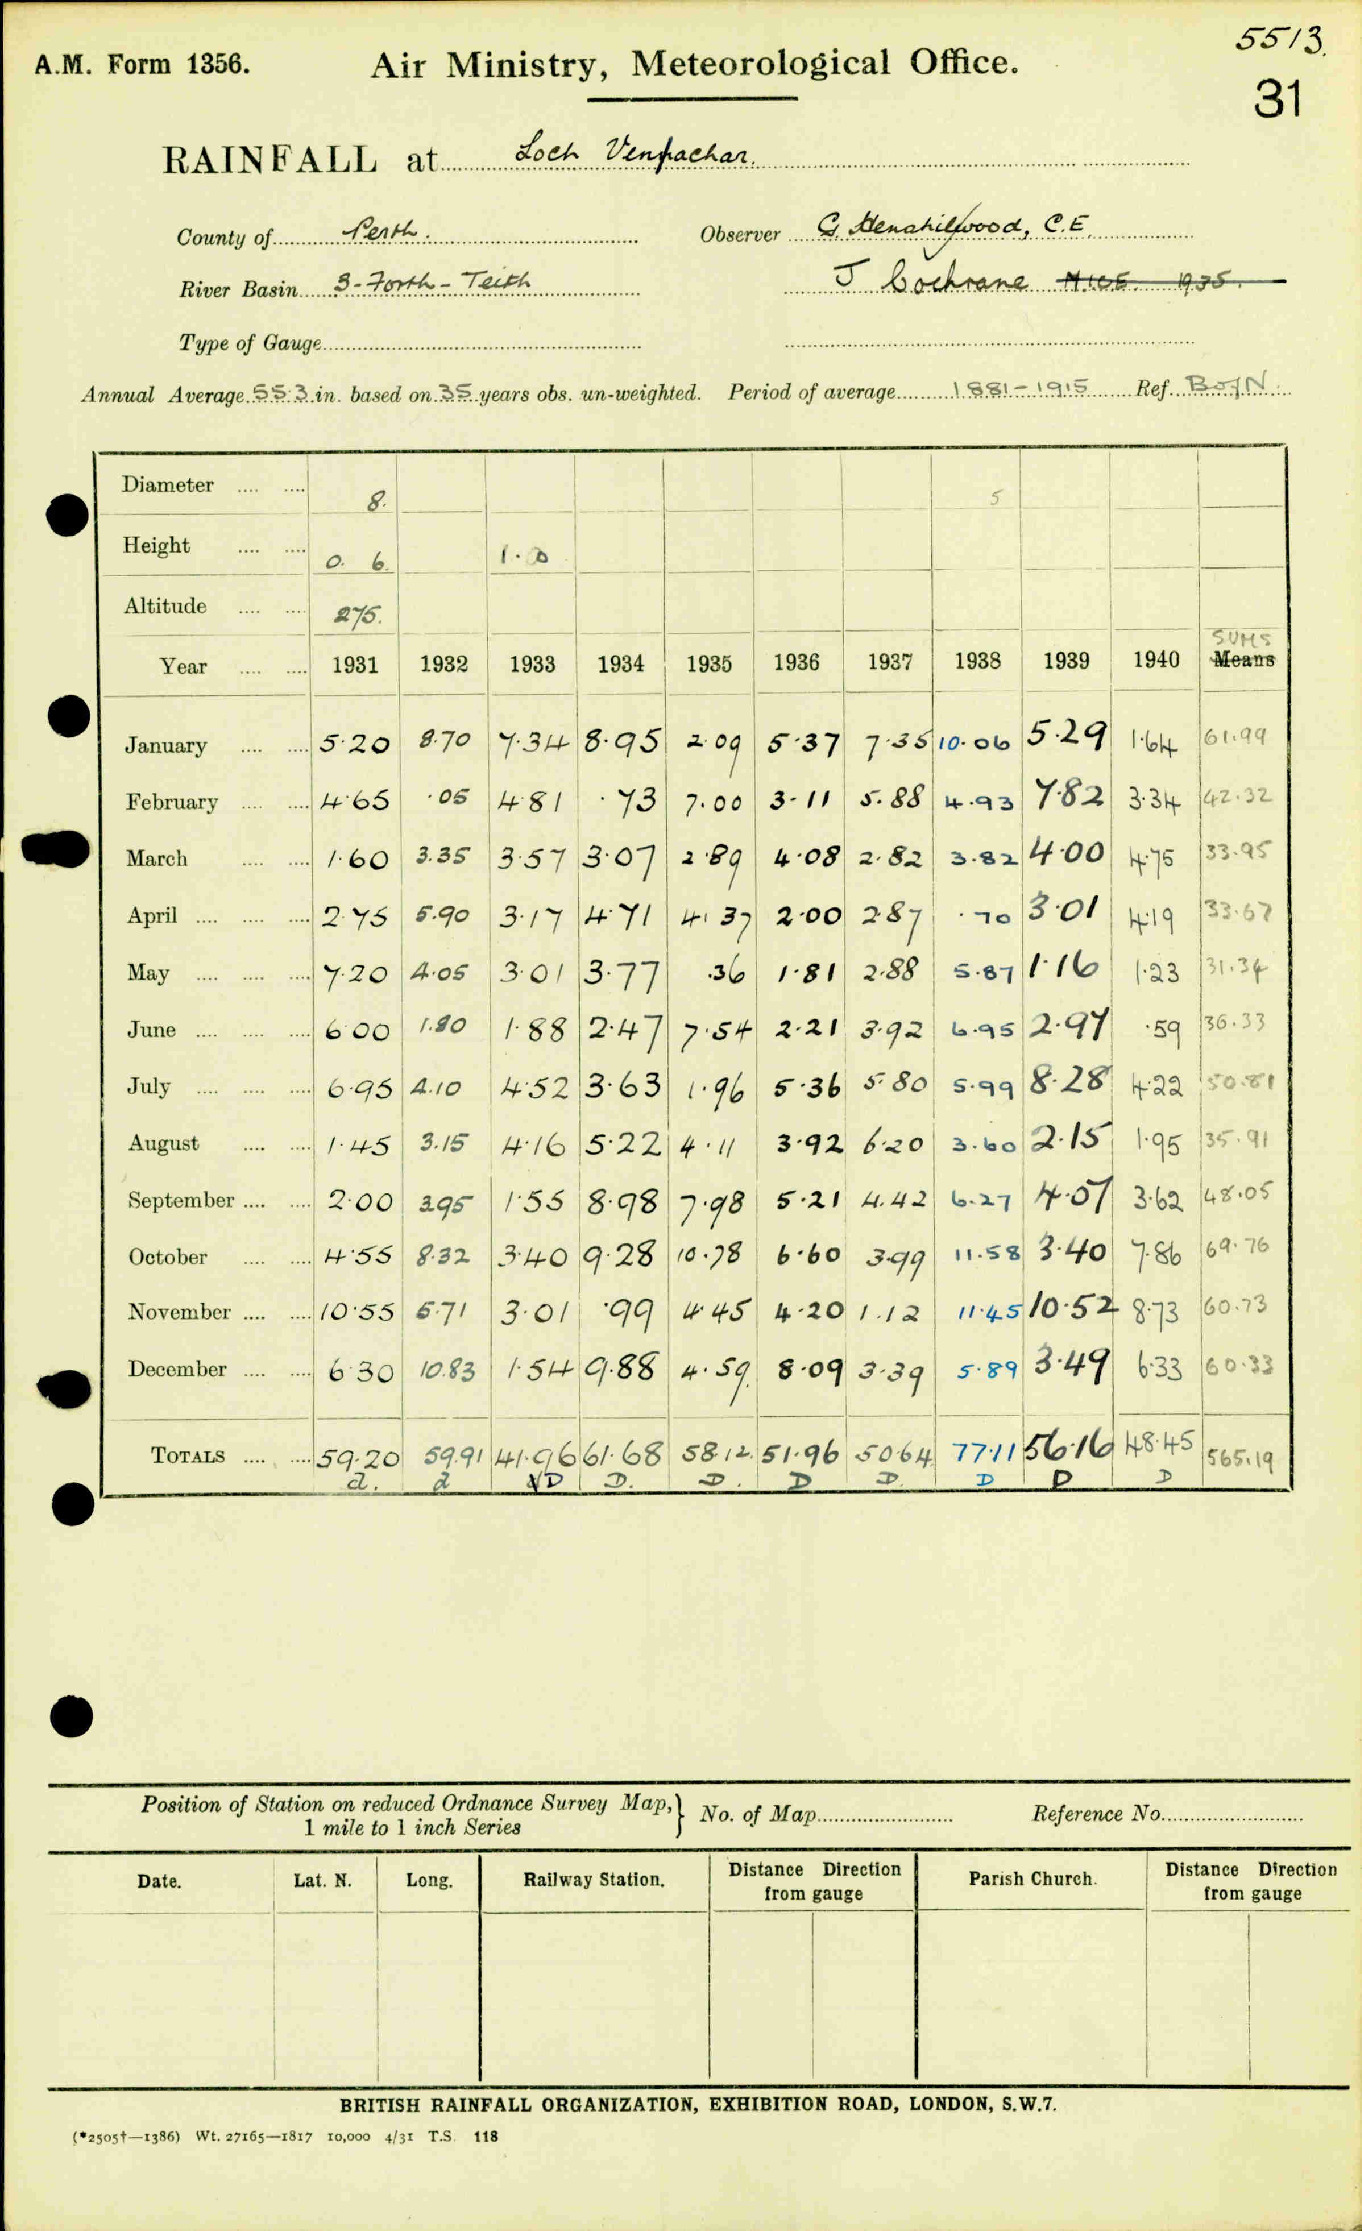 5513.
A.M. Form 1356. Air Ministry, Meteorological Office.
31
RAINFALL at Loch Vennachar.
County of Perth. Observer G. Henshilwood, C.E.
River Basin 3-Forth-Teith J Cochrane M.I.C.E. 1935.
Type of Gauge
Annual Average 55.3 in. based on 35 years obs. un-weighted. Period of average 1881-1915 Ref. B of N.
Diameter .... .... 8. 5
Height .... .... 0. 6. 1.0
Altitude .... .... 275.
SUMS
Year .... .... 1931 1932 1933 1934 1935 1936 1937 1938 1939 1940 Means
January .... .... 5.20 8.70 7.34 8.95 2.09 5.37 7.35 10.06 5.29 1.64 61.99
February .... .... 4.65 .05 4.81 .73 7.00 3.11 5.88 4.93 7.82 3.34 42.32
March .... .... 1.60 3.35 3.57 3.07 2.89 4.08 2.82 3.82 4.00 4.75 33.95
April .... .... .... 2.75 5.90 3.17 4.71 4.37 2.00 2.87 .70 3.01 4.19 33.67
May .... .... .... 7.20 4.05 3.01 3.77 .36 1.81 2.88 5.87 1.16 1.23 31.34
June .... .... .... 6.00 1.80 1.88 2.47 7.54 2.21 3.92 6.95 2.97 .59 36.33
July .... .... .... 6.95 4.10 4.52 3.63 1.96 5.36 5.80 5.99 8.28 4.22 50.81
August .... .... 1.45 3.15 4.16 5.22 4.11 3.92 6.20 3.60 2.15 1.95 35.91
September .... .... 2.00 3.95 1.55 8.98 7.98 5.21 4.42 6.27 4.07 3.62 48.05
October .... .... 4.55 8.32 3.40 9.28 10.78 6.60 3.99 11.58 3.40 7.86 69.76
November .... .... 10.55 5.71 3.01 .99 4.45 4.20 1.12 11.45 10.52 8.73 60.73
December .... .... 6.30 10.83 1.54 9.88 4.59 8.09 3.39 5.89 3.49 6.33 60.33
TOTALS .... .... 59.20 59.91 41.96 61.68 58.12 51.96 50.64 77.11 56.16 48.45 565.19
d. d D D. D. D D. D D D
Position of Station on reduced Ordnance Survey Map,} No. of Map Reference No.
1 mile to 1 inch Series
Date. Lat. N. Long. Railway Station. Distance Direction Parish Church. Distance Direction
from gauge from gauge
BRITISH RAINFALL ORGANIZATION, EXHIBITION ROAD, LONDON, S.W.7.
(*2505†—1386) Wt. 27165—1817 10,000 4/31 T.S. 118